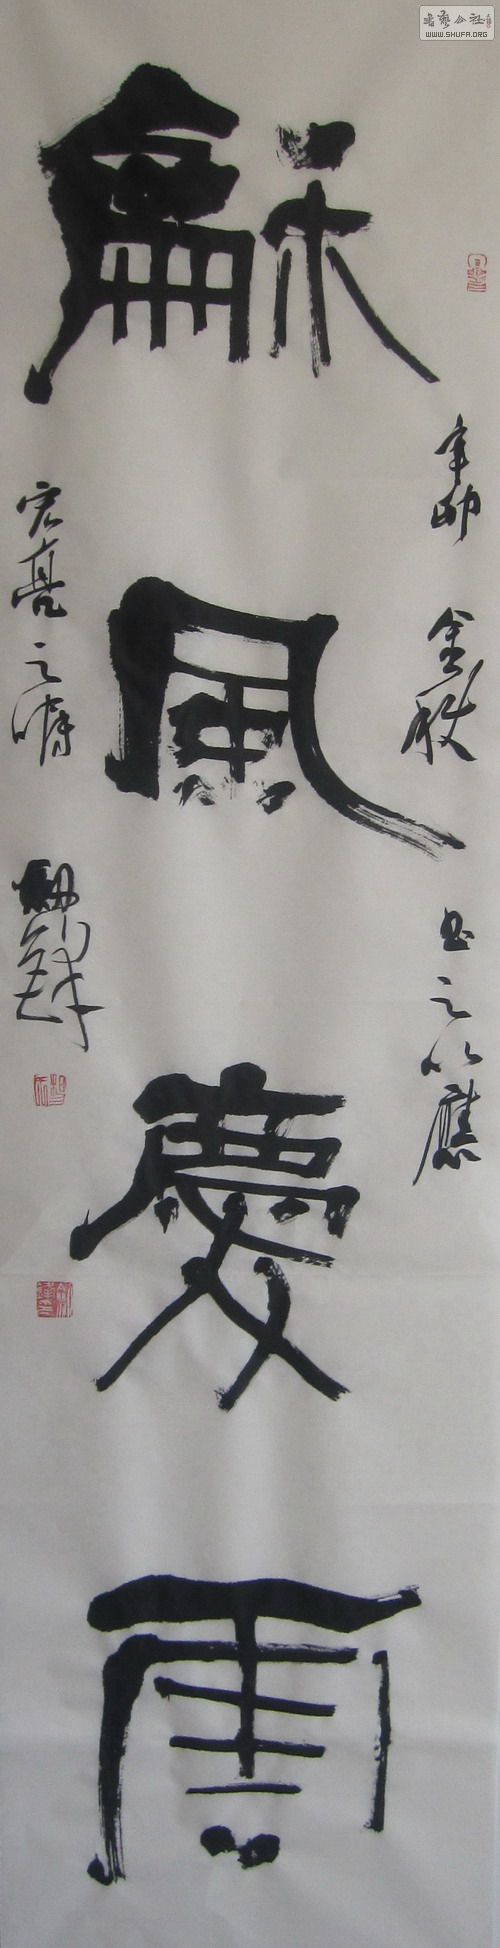 書藝公社
WWW.SHUFA.ORG
辛卯金秋書之以應
龢風慶雲
宏亮之嘱